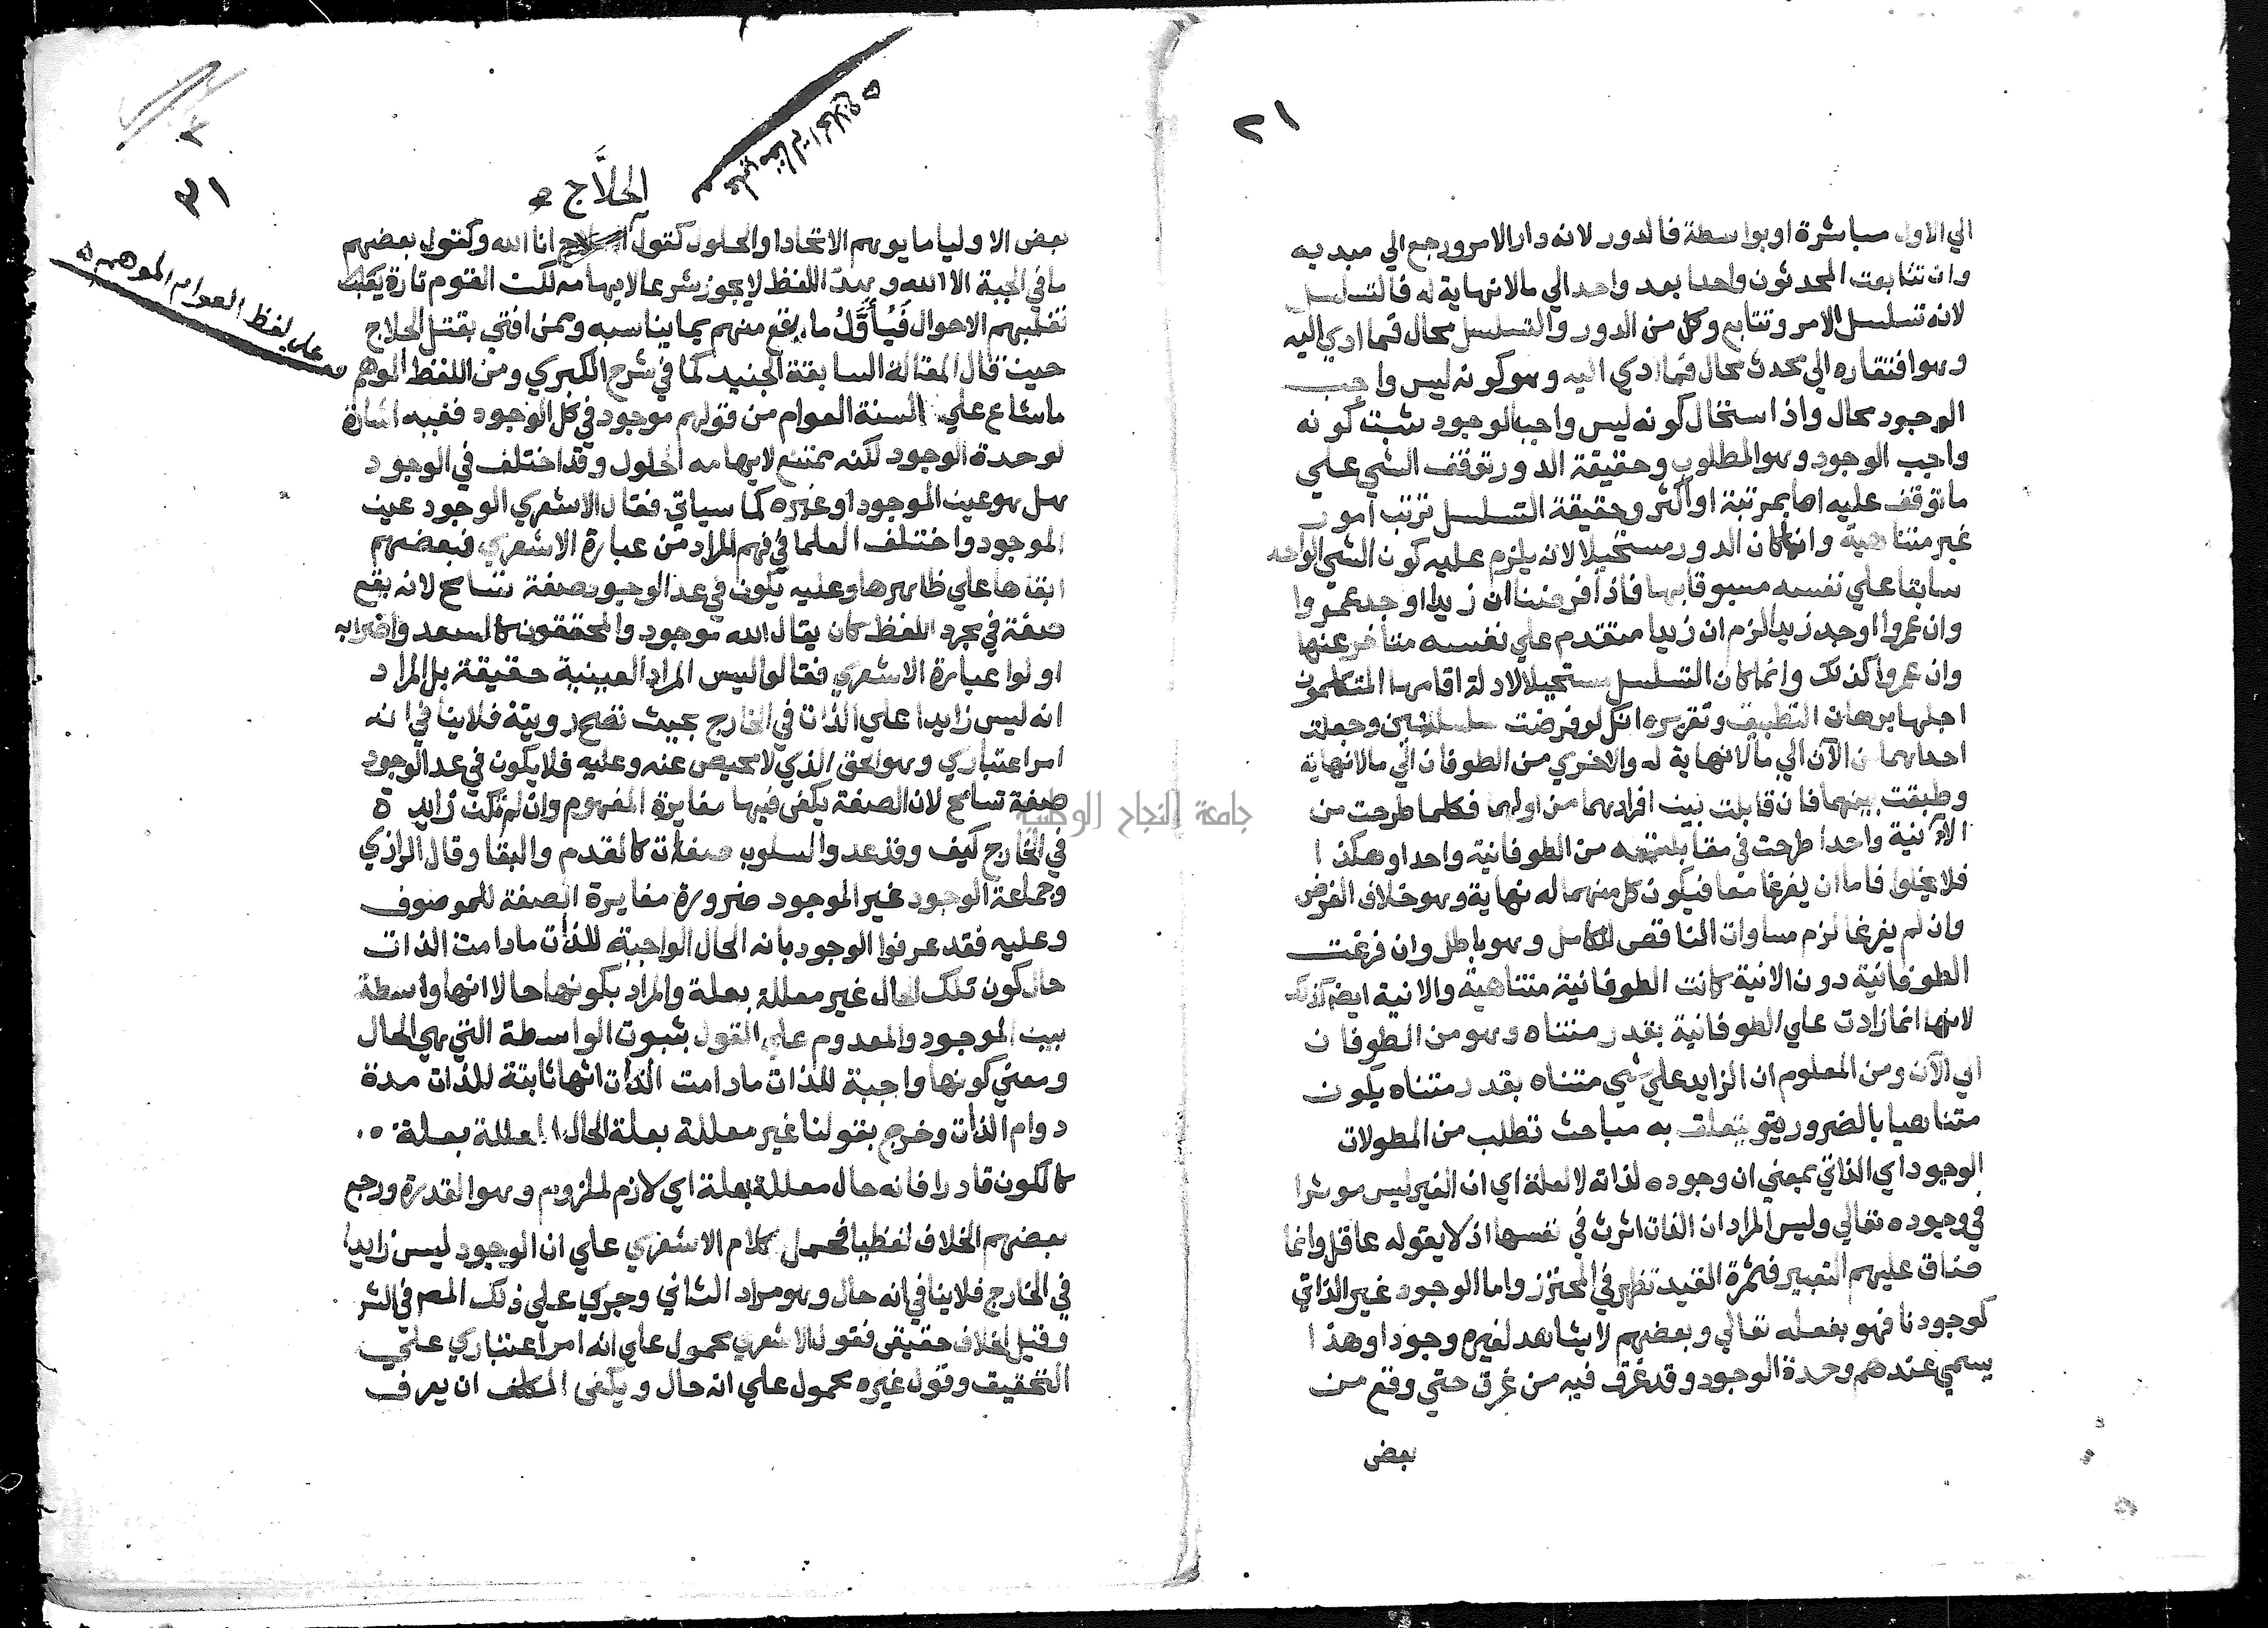 ٢١
الي الاول مباشرة او بواسطة فالدور لانه دار الامر ورجع الي مبديه
وان تتابعت المحدثون واحدا بعد واحد الي مالا نهاية له فالتسلسل
لانه تسلسل الامر وتتابع وكل من الدور والتسلسل محال فما ادي اليه
وهو افتقاره الي محدث محال فما ادي اليه وهو كونه ليس واجب
الوجود محال واذا استحال كونه ليس واجب الوجود ثبت كونه
واجب الوجود وهو المطلوب وحقيقة الدور توقف الشي علي
ما توقف عليه اما بمرتبة او اكثر وحقيقة التسلسل ترتب امور
غير متناهية وانما كان الدور مستحيلا لانه يلزم عليه كون الشي الواحد
سابقا علي نفسه مسبوقا بها فاذا فرضنا ان زيدا اوجد عمروا
وان عمروا اوجد زيدا لزم ان زيدا متقدم علي نفسه متاخر عنها
وان عمروا كذلك وانما كان التسلسل مستحيلا لادلة اقامها المتكلمون
اجلها برهان التطبيق وتقريره انك لو فرضت سلسلتين وجعلت
احداهما من الآن الي مالا نهاية له والاخري من الطوفان الي مالا نهاية
وطبقت بينهما فان قابلت بين افرادهما من اولهما فكلما طرحت من
الآنية واحدا طرحت في مقابلته من الطوفانية واحدا وهكذا
فلا يخلوا فاما ان يفرغا معا فيكون كل منهما له نهاية وهو خلاف الفرض
وان لم يفرغا لزم مساوات الناقص للكامل وهو باطل وان فرغت
الطوفانية دون الانية كانت الطوفانية متناهية والانية ايضا كذلك
لانها انما زادت علي الطوفانية بقدر متناه وهو من الطوفان
الي الآن ومن المعلوم ان الزايد علي شي متناه بقدر متناه يكون
متناهيا بالضرورة يتعلق به مباحث تطلب من المطولات
الوجود اي الذاتي بمعني ان وجوده لذاته لا لعلة اي ان الغير ليس موثرا
في وجوده تعالي وليس المراد ان الذات اثرت في نفسها اذ لا يقوله عاقل وانما
ضاق عليهم التعبير فثمرة القيد تظهر في المحترز واما الوجود غير الذاتي
كوجودنا فهو بفعله تعالي وبعضهم لا يشاهد لغيره وجودا وهذا
يسمي عندهم وحدة الوجود وقد غرق فيه من غرق حتي وقع من
بعض
على مقالة الحلاج
٣١
الحلاَّج
بعض الاوليا ما يوهم الاتحاد او الحلول كقول الحلاج انا الله وكقول بعضهم
ما في الجبة الا الله وهذا اللفظ لا يجوز شرعا لايهامه لكن القوم تارة
تغلبهم الاحوال فَيُأَوَّلُ ما يقع منهم بما يناسبه وممن افتي بقتل الحلاج
حيث قال المقالة السابقة الجنيد كما في شرح الكبري ومن اللفظ الموهم
على لفظ العوام الموهم
ما شاع علي السنة العوام من قولهم موجود في كل الوجود ففيه اشارة
لوحدة الوجود لكنه يمتنع لايهامه الحلول وقد اختلف في الوجود
هل هو عين الموجود او غيره كما سياتي فقال الاشعري الوجود عين
الموجود واختلف العلما في فهم المراد من عبارة الاشعري فبعضهم
ابقاها علي ظاهرها وعليه يكون في عد الوجود صفة تسامح لانه يقع
صفة في مجرد اللفظ كان يقال الله موجود والمحققون كالسعد واضرابه
اولوا عبارة الاشعري فقالوا ليس المراد العينية حقيقة بل المراد
انه ليس زايدا علي الذات في الخارج بحيث تصح رويته فلا ينافي انه
امر اعتباري وهو الحق الذي لا محيص عنه وعليه فلا يكون في عد الوجود
صفة تسامح لان الصفة يكفي فيها مغايرة المفهوم وان لم تكن زايدة
في الخارج كيف وقد عدوا السلوب صفات كالقدم والبقا وقال الرازي
وجماعة الوجود غير الموجود ضرورة مغايرة الصفة للموصوف
وعليه فقد عرفوا الوجود بانه الحال الواجبة للذات مادامت الذات
حال كون تلك الحال غير معللة بعلة والمراد بكونها حالا انها واسطة
بين الموجود والمعدوم علي القول بثبوت الواسطة التي هي الحال
ومعني كونها واجبة للذات مادامت الذات انها ثابتة للذات مدة
دوام الذات وخرج بقولنا غير معللة بعلة الحال المعللة بعلة
كالكون قادرا فانه حال معللة بعلة اي لازم لملزوم وهو القدرة ورجع
بعضهم الخلاف لفظيا فحمل كلام الاشعري علي ان الوجود ليس زايدا
في الخارج فلا ينافي انه حال وهو مراد الثاني وجري علي ذلك المص في الشر
وقيل الخلاف حقيقي فقول الاشعري محمول علي انه امر اعتباري علي
التحقيق وقول غيره محمول علي انه حال ويكفي المكلف ان يعرف
جامعة النجاح الوطنية